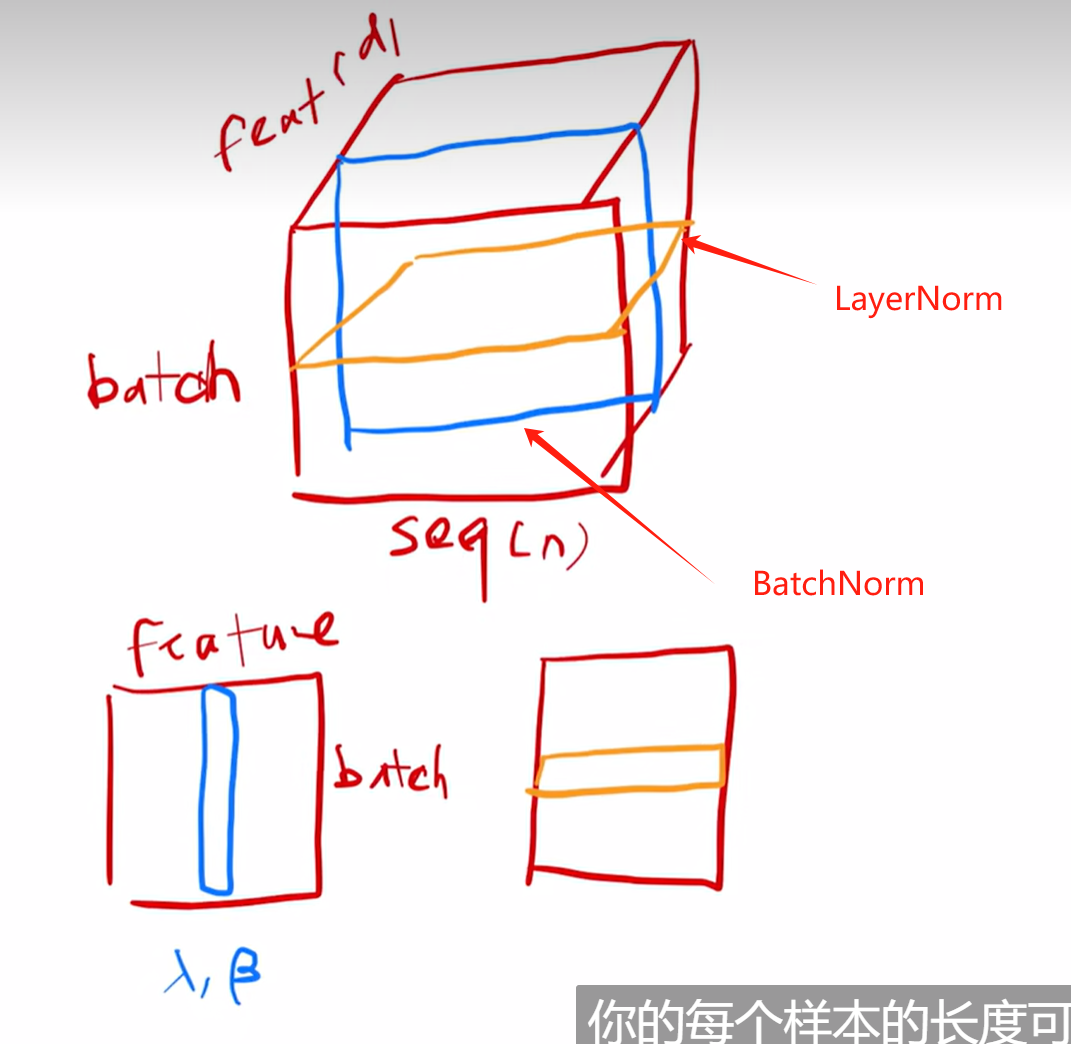 feat (d)
LayerNorm
batch
seq (n)
BatchNorm
feature
batch
λ, β
你的每个样本的长度可